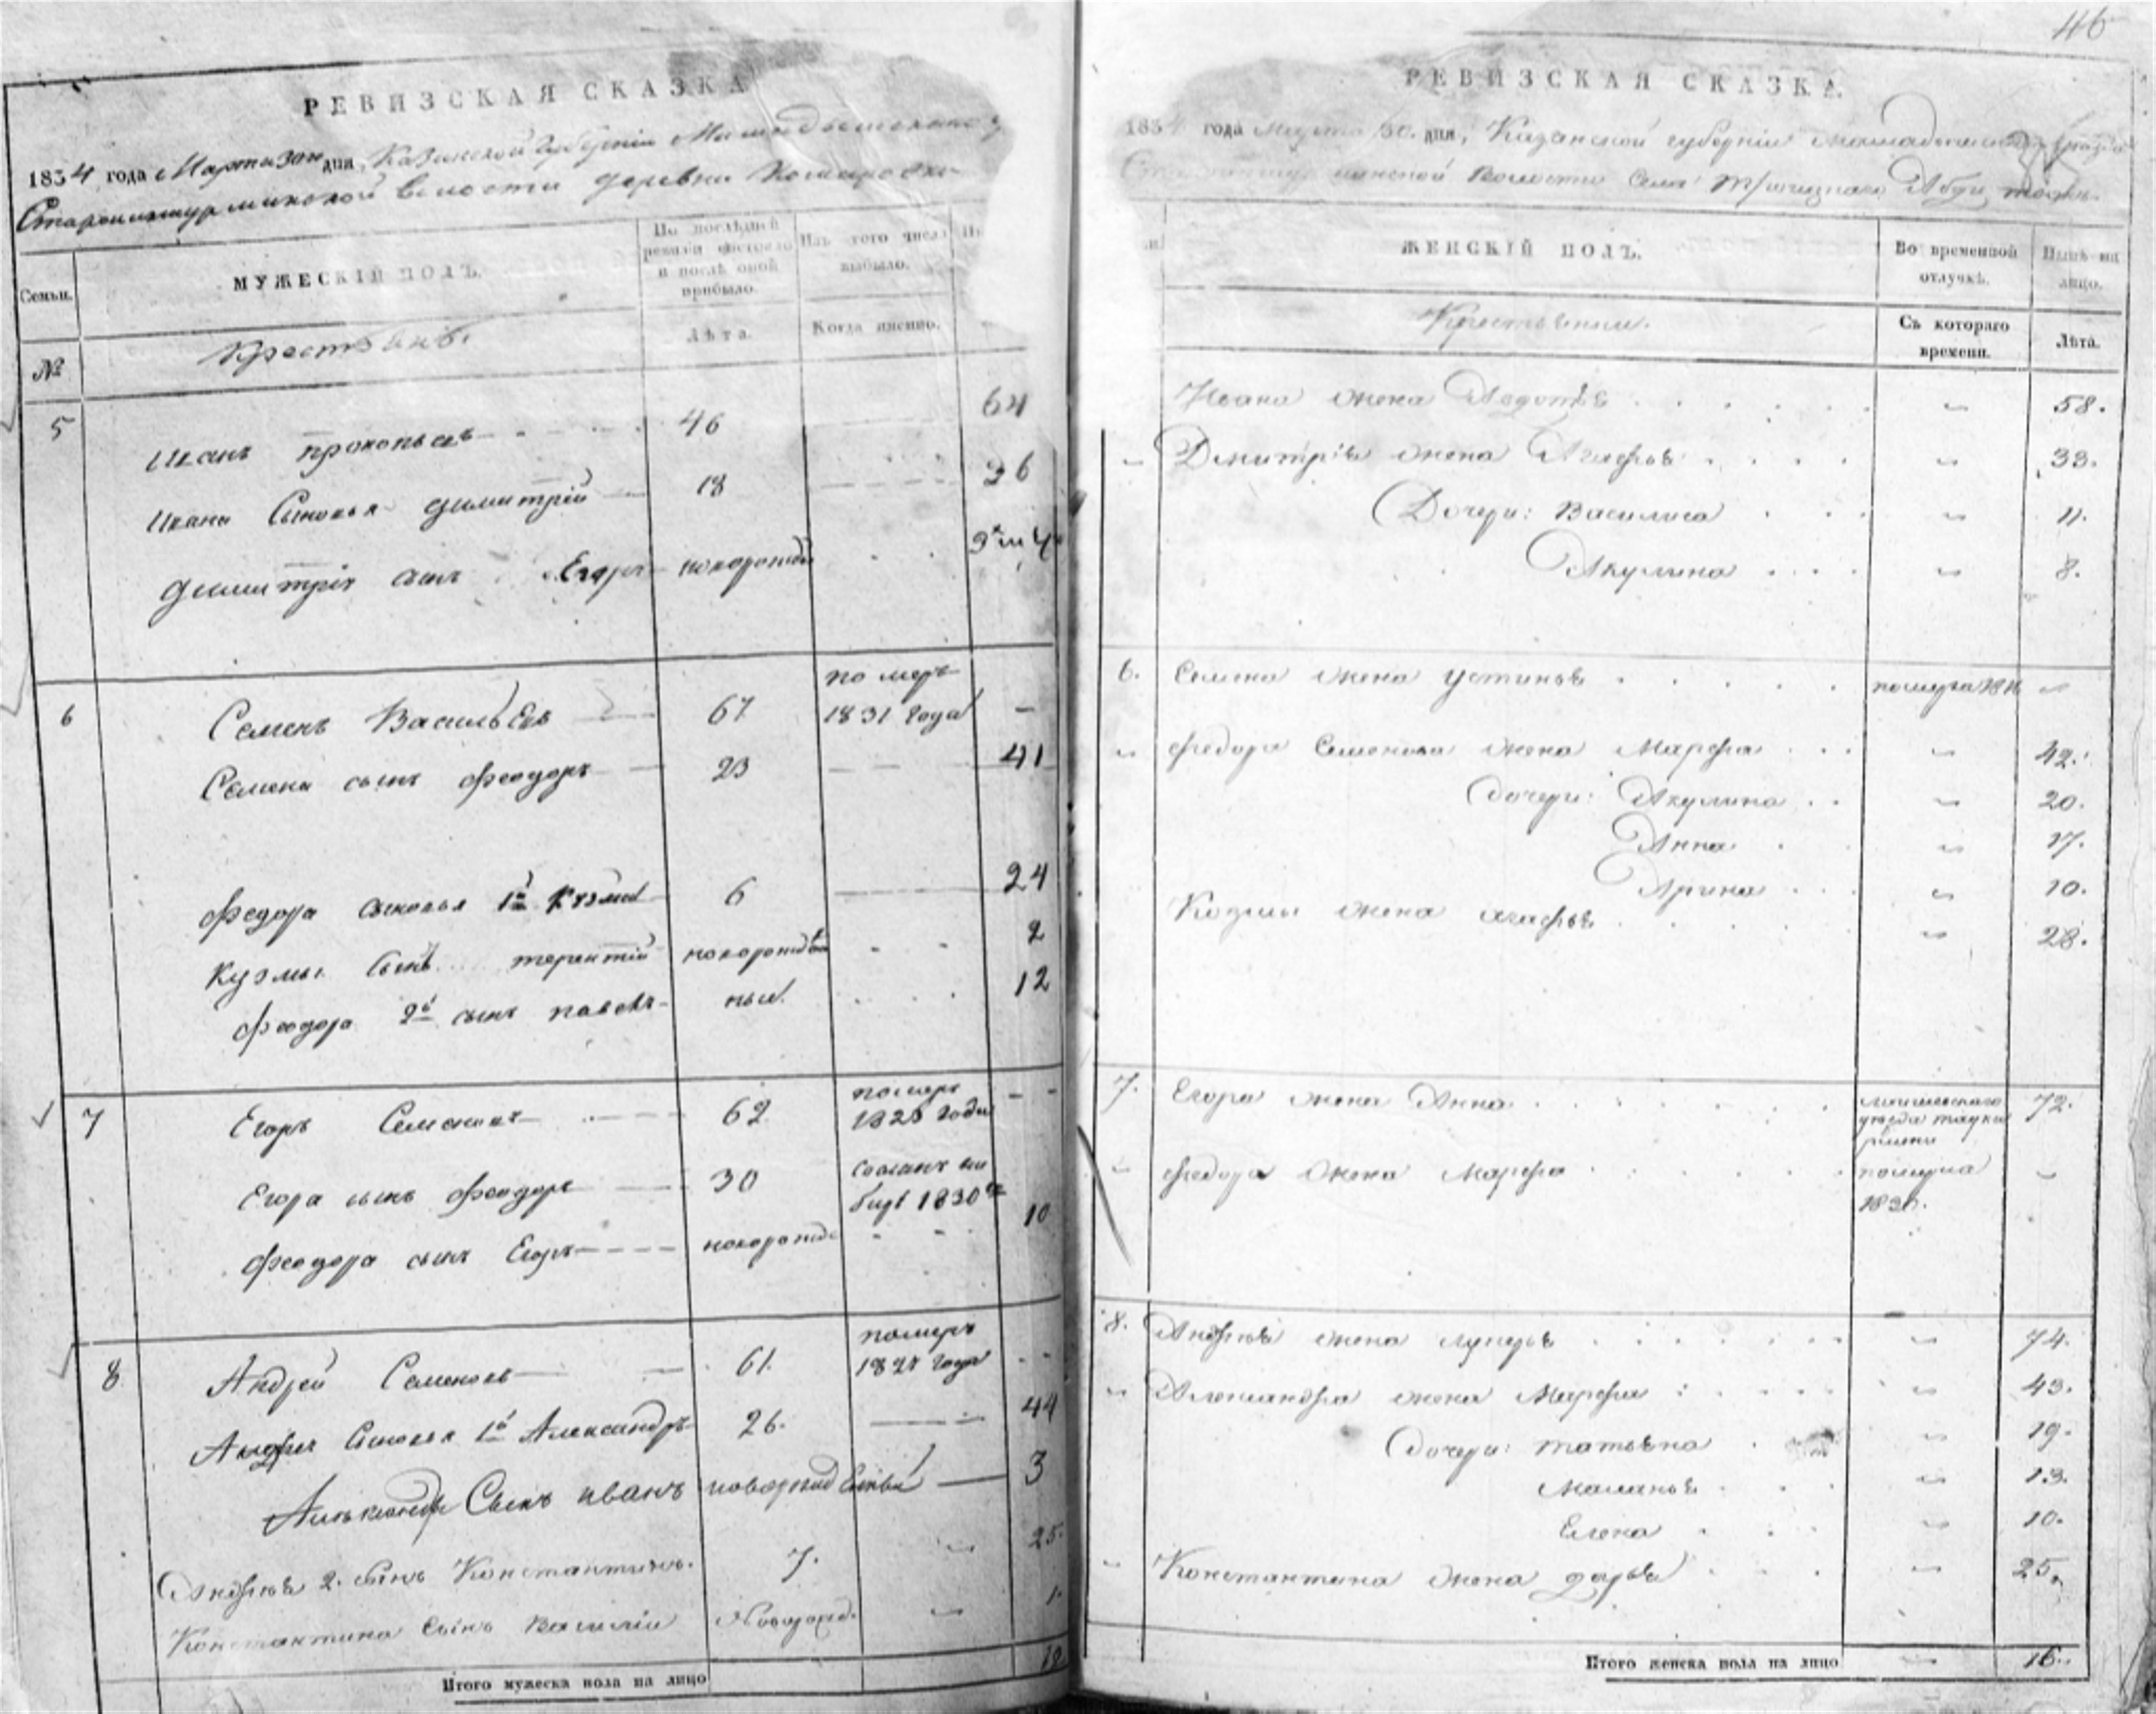 РЕВИЗСКАЯ СКАЗКА
1834 года Марта 30 дня, Казанской Губернiи
волости деревни Комаровки
Семьи.
МУЖЕСКIЙ ПОЛЪ.
По послѣдней ревизiи состояло и послѣ оной прибыло.
Изъ того числа выбыло.
№
Крестьянѣ.
Лѣта.
Когда именно.
5
Иванъ Прокопьевъ 46 64
Ивана Сыновья Димитрiй 18 36
Димитрiя сынъ Егоръ новорожд
6
Семенъ Васильевъ 67 померъ 1831 года —
Семена сынъ Феодоръ 23 41
Федора сыновья 1й Кузма 6 24
Кузмы сынъ терентiй новорожден 2
Феодора 2й сынъ павелъ ные 12
7
Егоръ Семеновъ 62 померъ года
Егора сынъ Феодоръ 30 1830 10
Феодора сынъ Егоръ новорожде
8
Андрей Семеновъ 61. померъ года
Андрея Сыновья 1й Александръ 26. 44
Сынъ иванъ новорожденный 3
Андрея 2. сынъ Константинъ. 7. 25.
Константина сынъ Василiй Новорожд. 1.
Итого мужеска пола на лицо
46
РЕВИЗСКАЯ СКАЗКА.
1834 года Марта 30. дня, Казанской губернiи
волости
ЖЕНСКIЙ ПОЛЪ.
Во временной отлучкѣ.
Нынѣ на лицо.
Съ котораго времени.
Лѣта.
Ивана жена Авдотья 58.
Дмитрiя жена Агафья 33.
Дочери: Василиса 11.
Акулина 8.
6. Семена жена Устинья померла
Федора Семенова жена Марфа 42.
Дочери: Акулина 20.
Анна 17.
Арина 10.
Козмы жена Агафья 28.
7. Егора жена Анна уѣзда 72.
Федора жена Марфа померла
8. Андрея жена Лукерья 74.
Александра жена Марфа 43.
Дочери: татьяна 19.
Маланья 13.
Елена 10.
Константина жена дарья 25.
Итого женска пола на лицо 16.